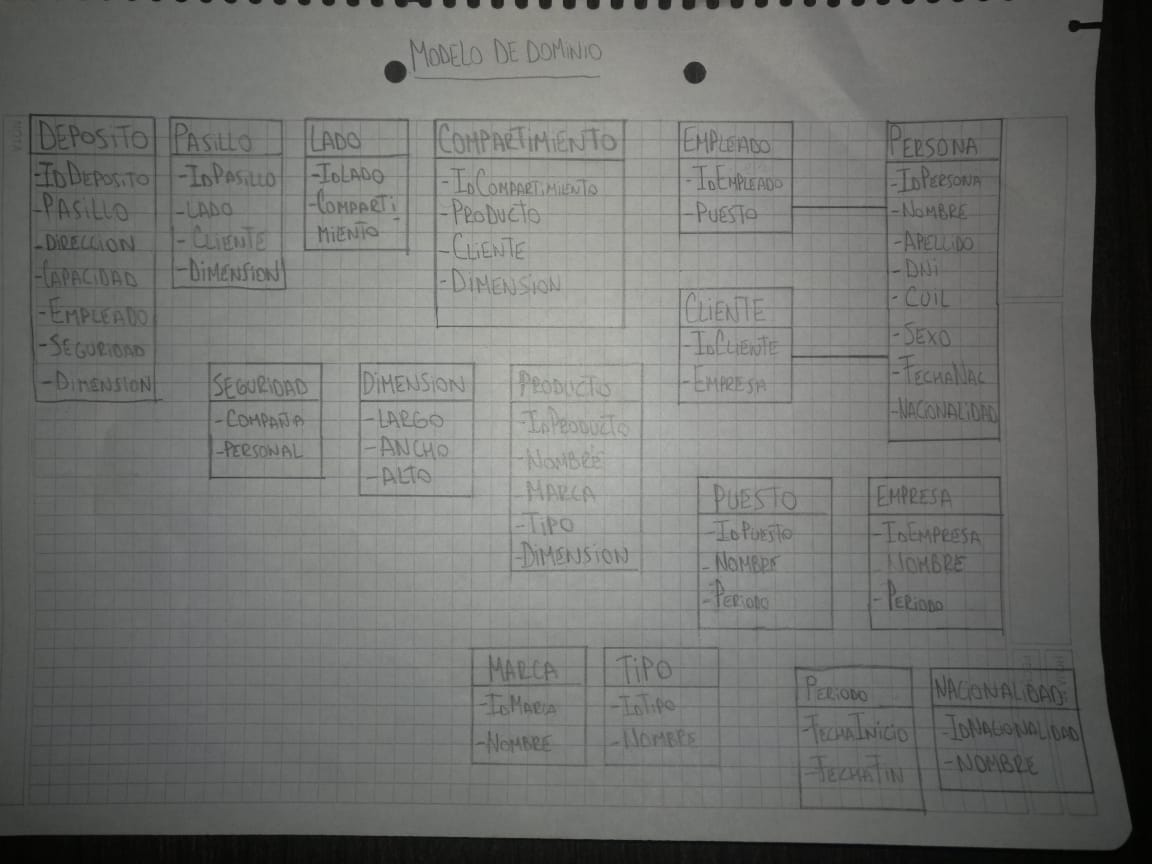 MODELO DE DOMINIO
DEPOSITO
-IDDEPOSITO
-PASILLO
-DIRECCION
-CAPACIDAD
-EMPLEADO
-SEGURIDAD
-DIMENSION
PASILLO
-IDPASILLO
-LADO
-CLIENTE
-DIMENSION
LADO
-IDLADO
-COMPARTI-
MIENTO
COMPARTIMIENTO
-IDCOMPARTIMIENTO
-PRODUCTO
-CLIENTE
-DIMENSION
EMPLEADO
-IDEMPLEADO
-PUESTO
PERSONA
-IDPERSONA
-NOMBRE
-APELLIDO
-DNI
-CUIL
-SEXO
-FECHANAC
-NACIONALIDAD
CLIENTE
-IDCLIENTE
-EMPRESA
SEGURIDAD
-COMPAÑA
-PERSONAL
DIMENSION
-LARGO
-ANCHO
-ALTO
PRODUCTO
-IDPRODUCTO
-NOMBRE
-MARCA
-TIPO
-DIMENSION
PUESTO
-IDPUESTO
-NOMBRE
-PERIODO
EMPRESA
-IDEMPRESA
-NOMBRE
-PERIODO
MARCA
-IDMARCA
-NOMBRE
TIPO
-IDTIPO
-NOMBRE
PERIODO
-FECHAINICIO
-FECHAFIN
NACIONALIDAD
-IDNACIONALIDAD
-NOMBRE